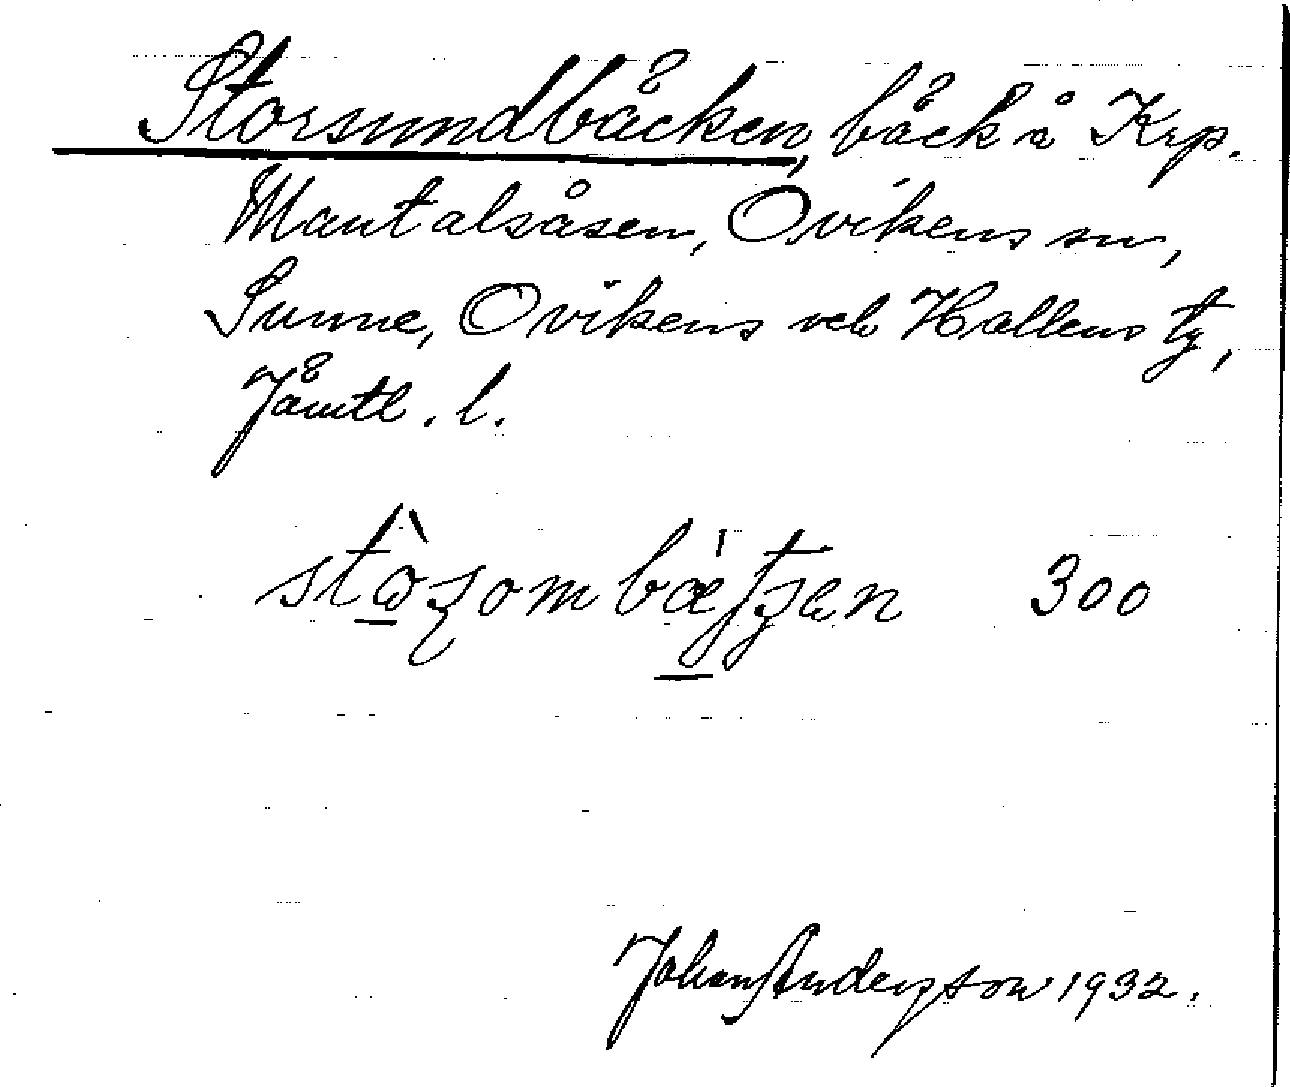 Storsundbäcken, bäck å Krp.
Mantalsåsen, Ovikens sn,
Sunne, Ovikens och Hallens tg,
Jämtl. l.
300
Johan Anderson 1932.